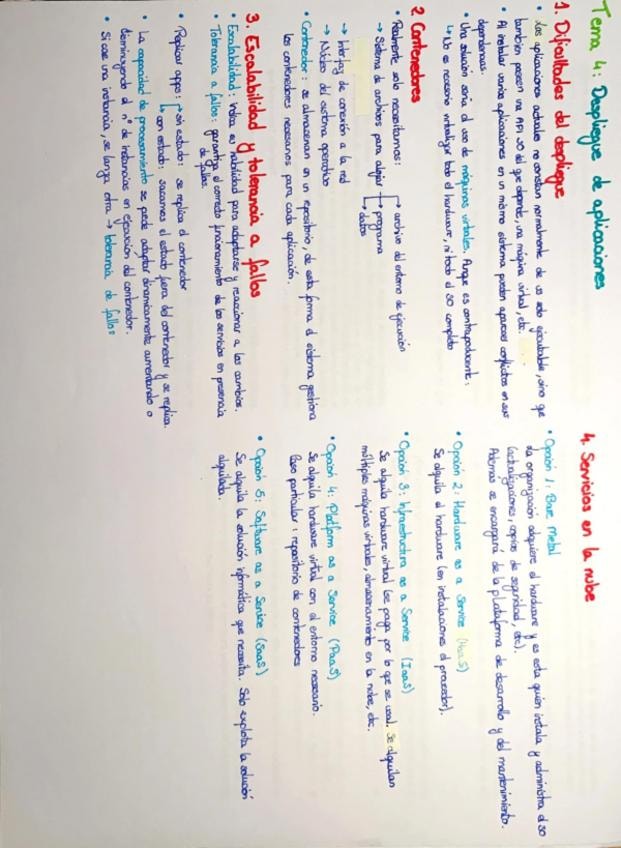 Tema 4: Despliegue de aplicaciones
1. Dificultades del despliegue
• Las aplicaciones actuales no constan normalmente de un solo ejecutable, sino que
también poseen una API, so del que depende, una máquina virtual, etc.
• Al instalar varias aplicaciones en un mismo sistema pueden aparecer conflictos en sus
dependencias.
• Una solución sería el uso de máquinas virtuales. Aunque es contraproducente:
↳ No es necesario virtualizar todo el hardware, ni todo el SO completo
2 Contenedores
• Realmente solo necesitamos:
→ Sistema de archivos para alojar
→ archivo del entorno de ejecución
→ programa
→ datos
→ Interfaz de conexión a la red
→ Núcleo del sistema operativo
• Contenedor: se almacenan en un repositorio, de esta forma el sistema gestiona
los contenedores necesarios para cada aplicación.
3. Escalabilidad y tolerancia a fallos
• Escalabilidad: indica su habilidad para adaptarse y reaccionar a los cambios.
• Tolerancia a fallos: garantiza el correcto funcionamiento de los servicios en presencia
de fallos.
• Replicar apps: → sin estado: se replica el contenedor
↳ con estado: sacamos el estado fuera del contenedor y se replica.
• La capacidad de procesamiento se puede adaptar dinámicamente aumentando o
disminuyendo el nº de instancias en ejecución del contenedor.
• Si cae una instancia, se lanza otra → tolerancia de fallos
4. Servicios en la nube
• Opción 1: Bare metal
La organización adquiere el hardware y es esta quién instala y administra el SO
(actualizaciones, copias de seguridad, etc).
Además se encargará de la plataforma de desarrollo y del mantenimiento.
• Opción 2: Hardware as a Service (HaaS)
Se alquila el hardware (en instalaciones el proveedor).
• Opción 3: Infraestructura as a Service (IaaS)
Se alquila hardware virtual (se paga por lo que se usa). Se alquilan
múltiples máquinas virtuales, almacenamiento en la nube, etc.
• Opción 4: Platform as a Service (PaaS)
Se alquila hardware virtual con el entorno necesario.
Caso particular: repositorio de contenedores
• Opción 5: Software as a Service (SaaS)
Se alquila la solución informática que necesita. Solo explota la solución
alquilada.